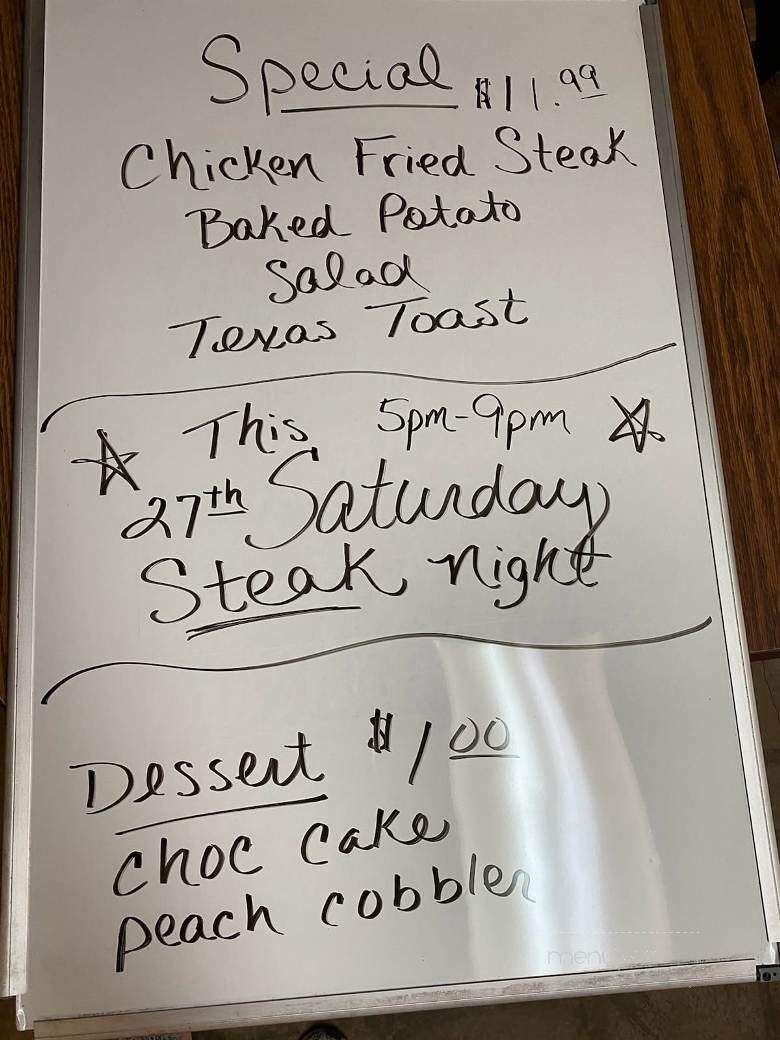 Special $11.99
Chicken Fried Steak
Baked Potato
Salad
Texas Toast
This 5pm-9pm
27th Saturday
Steak night
Dessert $1.00
choc cake
peach cobbler
menu